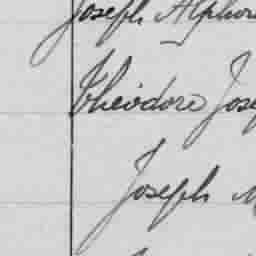 Joseph Alphon
Theodore Jose
Joseph M